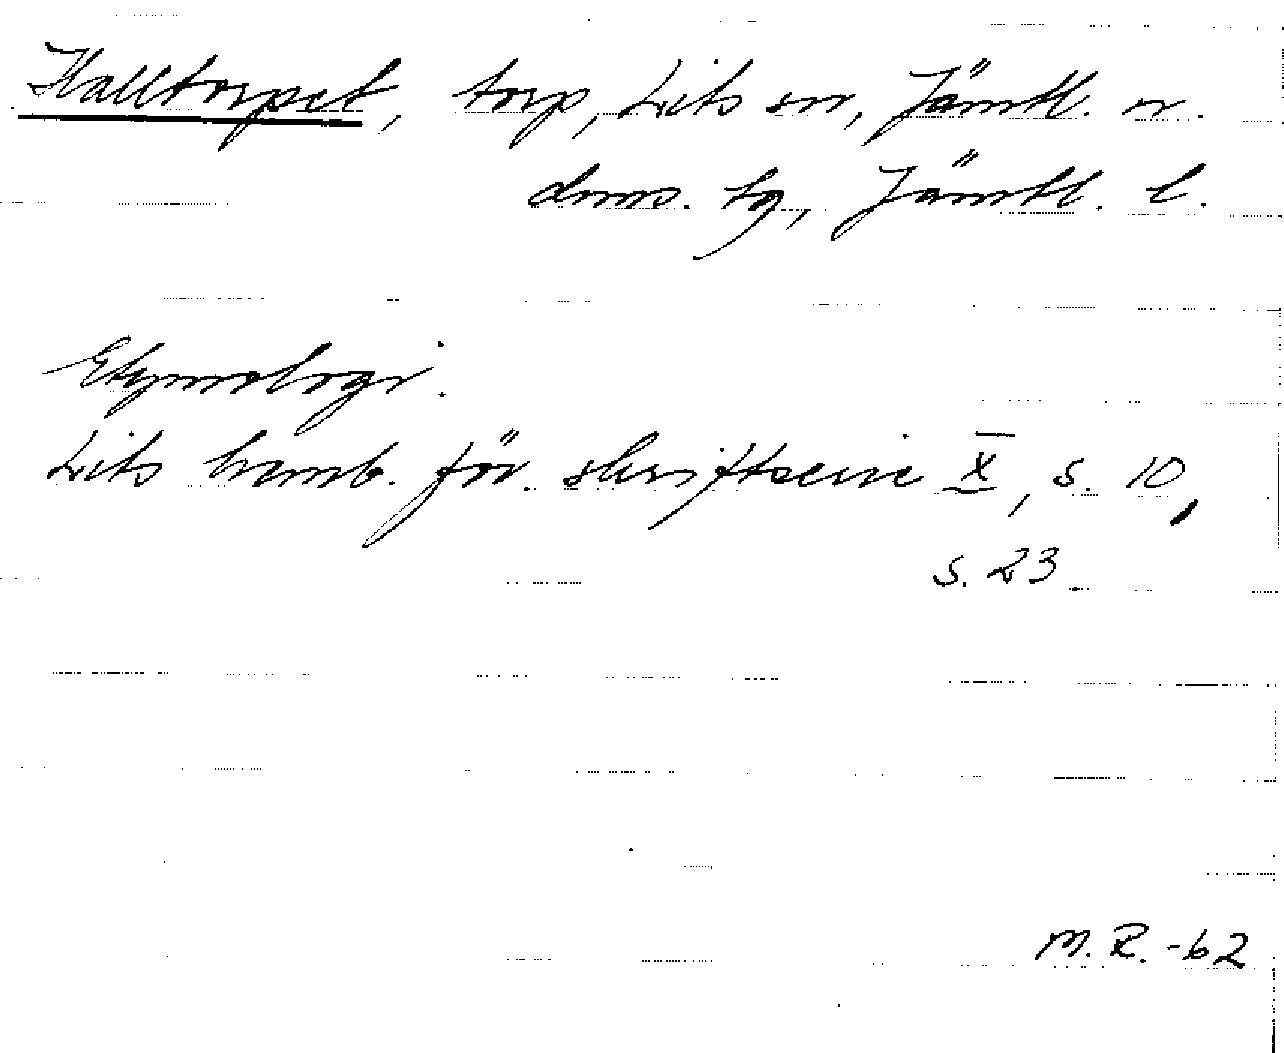 Halltorpet, torp, Lits sn, Jämtl. n.
doms. tg, Jämtl. l.
Etymologi:
Lits hemb. för. skriftserie X, s. 10,
s. 23
M.R. -62